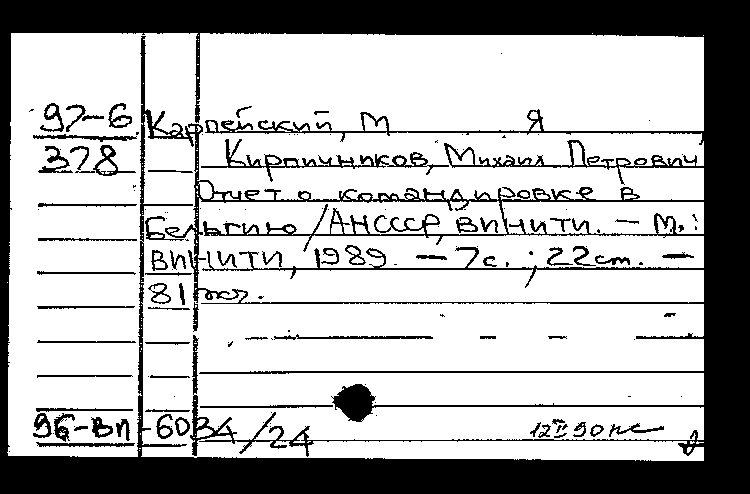 97-6 Карпейский, М Я
378 Кирпичников, Михаил Петрович
Отчет о командировке в
Бельгию / АНСССР, ВИНИТИ. — М.:
ВИНИТИ, 1989. — 7с.; 22см. —
81
96-вп-6034/24 12 II 90